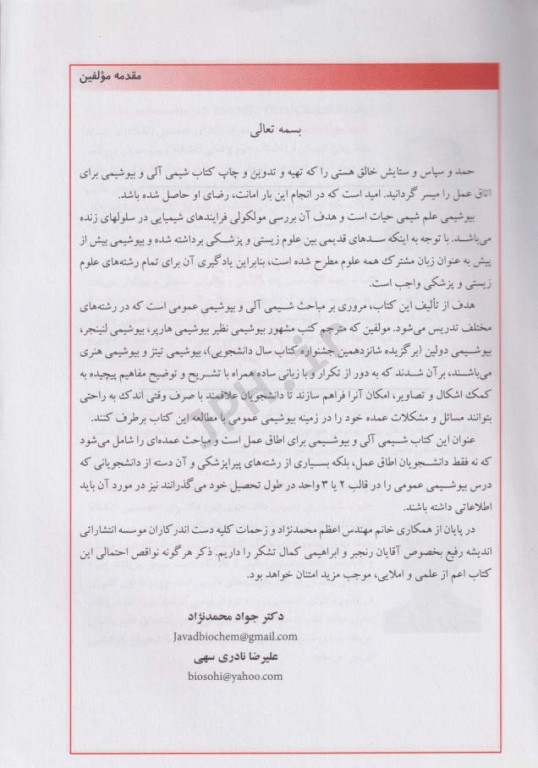 مقدمه مؤلفین
بسمه تعالی
حمد و سپاس و ستایش خالق هستی را که تهیه و تدوین و چاپ کتاب شیمی آلی و بیوشیمی برای
اتاق عمل را میسر گردانید. امید است که در انجام این بار امانت، رضای او حاصل شده باشد.
بیوشیمی علم شیمی حیات است و هدف آن بررسی مولکولی فرایندهای شیمیایی در سلولهای زنده
می‌باشد. با توجه به اینکه سدهای قدیمی بین علوم زیستی و پزشکی برداشته شده و بیوشیمی بیش از
پیش به عنوان زبان مشترک همه علوم مطرح شده است، بنابراین یادگیری آن برای تمام رشته‌های علوم
زیستی و پزشکی واجب است.
هدف از تألیف این کتاب، مروری بر مباحث شیمی آلی و بیوشیمی عمومی است که در رشته‌های
مختلف تدریس می‌شود. مولفین که مترجم کتب مشهور بیوشیمی نظیر بیوشیمی هارپر، بیوشیمی لنینجر،
بیوشیمی دولین (برگزیده شانزدهمین جشنواره کتاب سال دانشجویی)، بیوشیمی تیتز و بیوشیمی هنری
می‌باشند، برآن شدند که به دور از تکرار و با زبانی ساده همراه با تشریح و توضیح مفاهیم پیچیده به
کمک اشکال و تصاویر، امکان آنرا فراهم سازند تا دانشجویان علاقمند با صرف وقتی اندک به راحتی
بتوانند مسائل و مشکلات عمده خود را در زمینه بیوشیمی عمومی با مطالعه این کتاب برطرف کنند.
عنوان این کتاب شیمی آلی و بیوشیمی برای اطاق عمل است و مباحث عمده‌ای را شامل می‌شود
که نه فقط دانشجویان اطاق عمل، بلکه بسیاری از رشته‌های پیراپزشکی و آن دسته از دانشجویانی که
درس بیوشیمی عمومی را در قالب ۲ یا ۳ واحد در طول تحصیل خود می‌گذرانند نیز در مورد آن باید
اطلاعاتی داشته باشند.
در پایان از همکاری خانم مهندس اعظم محمدنژاد و زحمات کلیه دست اندرکاران موسسه انتشاراتی
اندیشه رفیع بخصوص آقایان رنجبر و ابراهیمی کمال تشکر را داریم. ذکر هرگونه نواقص احتمالی این
کتاب اعم از علمی و املایی، موجب مزید امتنان خواهد بود.
دکتر جواد محمدنژاد
Javadbiochem@gmail.com
علیرضا نادری سهی
biosohi@yahoo.com
JPH.ir